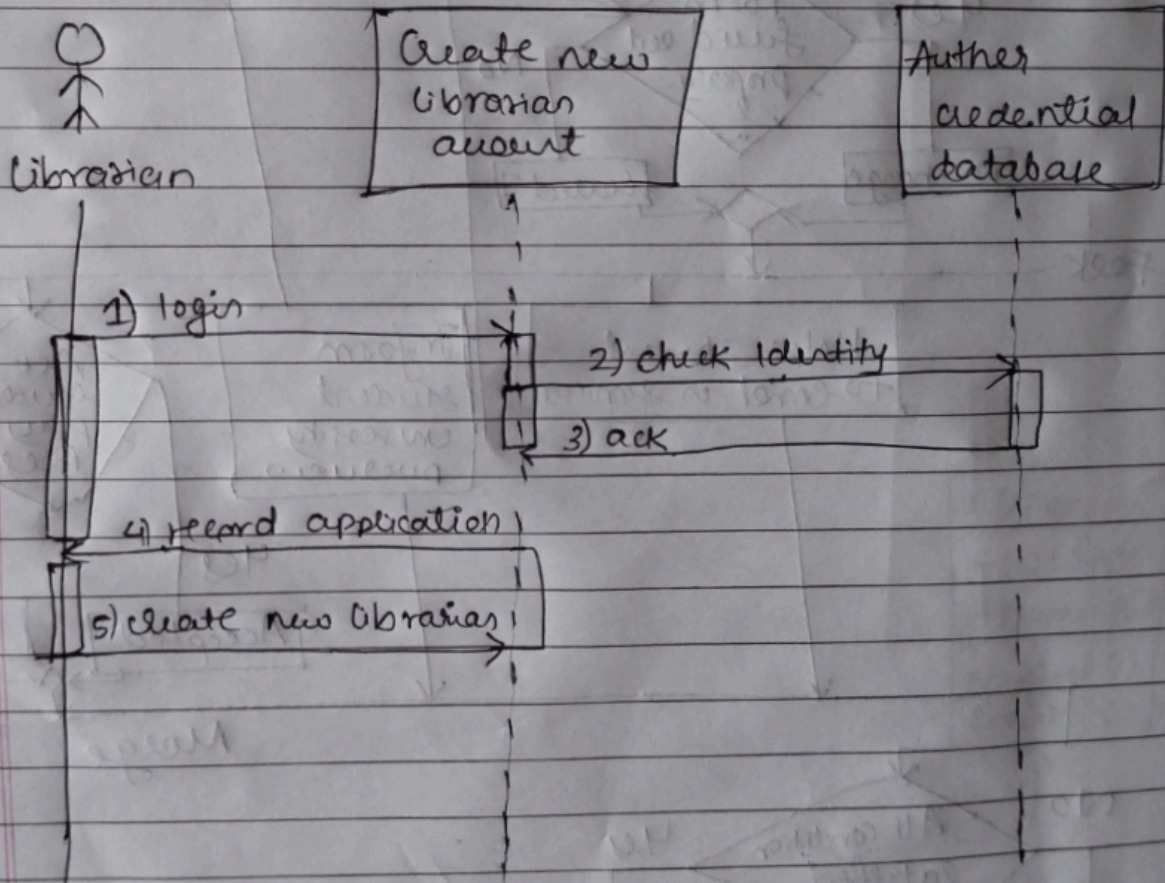 Create new
librarian
account
Auther
credential
database
Librarian
1) login
2) check Identity
3) ack
4) record application
5) create new librarian